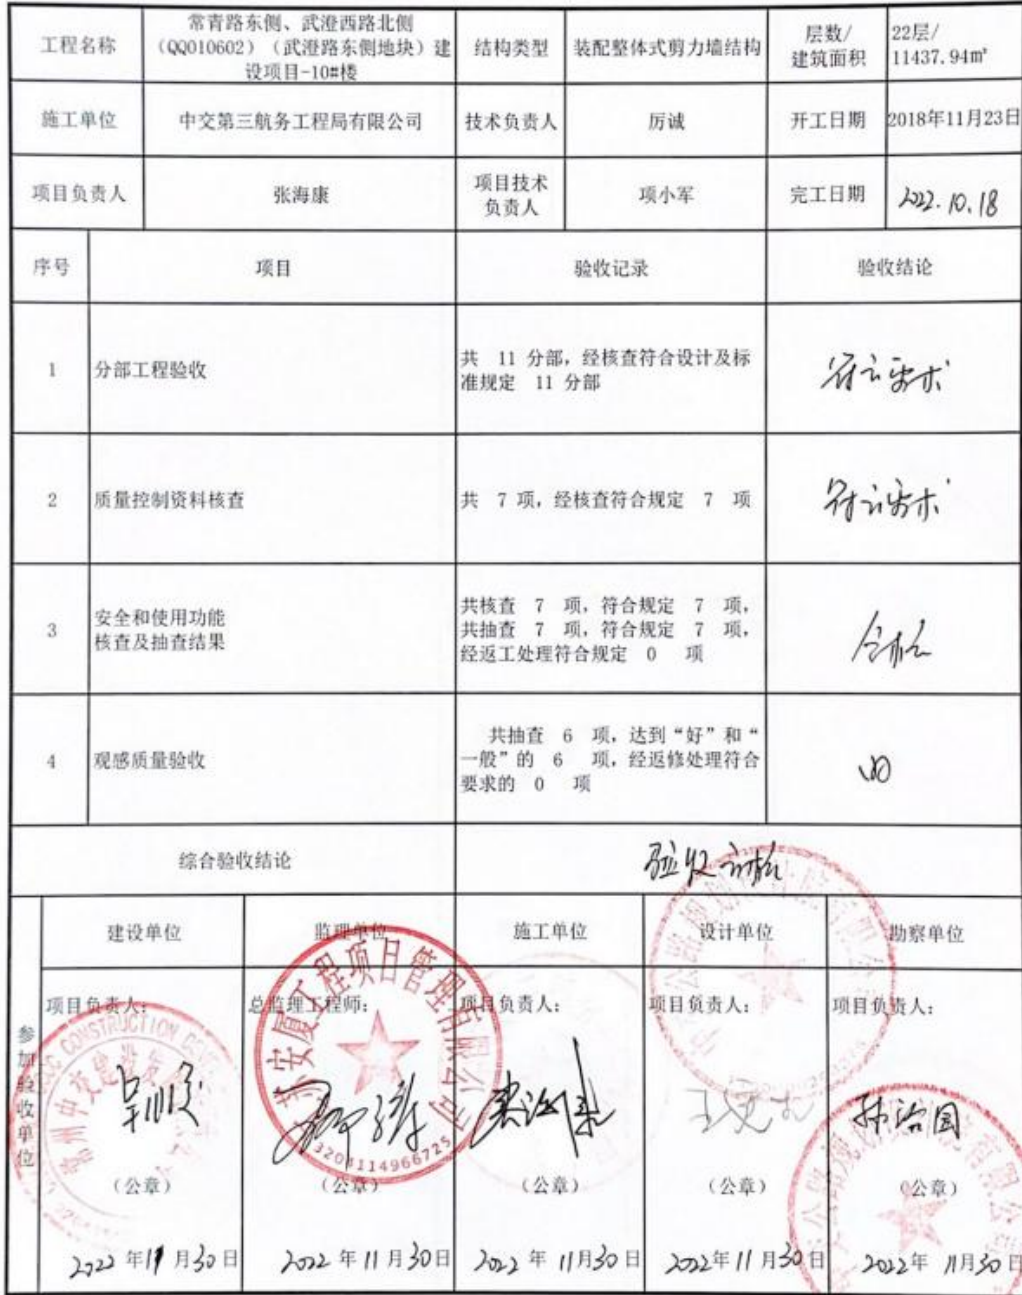 工程名称
常青路东侧、武澄西路北侧
（QQ010602）（武澄路东侧地块）建
设项目-10#楼
结构类型
装配整体式剪力墙结构
层数/
建筑面积
22层/
11437.94㎡
施工单位
中交第三航务工程局有限公司
技术负责人
厉诚
开工日期
2018年11月23日
项目负责人
张海康
项目技术
负责人
项小军
完工日期
2022.10.18
序号
项目
验收记录
验收结论
1
分部工程验收
共 11 分部，经核查符合设计及标
准规定 11 分部
符合要求
2
质量控制资料核查
共 7 项，经核查符合规定 7 项
符合要求
3
安全和使用功能
核查及抽查结果
共核查 7 项，符合规定 7 项，
共抽查 7 项，符合规定 7 项，
经返工处理符合规定 0 项
合格
4
观感质量验收
共抽查 6 项，达到“好”和“
一般”的 6 项，经返修处理符合
要求的 0 项
综合验收结论
验收合格
参加验收单位
建设单位
监理单位
施工单位
设计单位
勘察单位
项目负责人：
总监理工程师：
项目负责人：
项目负责人：
项目负责人：
CONSTRUCTION
常州中交建设发
安厦工程项目管理有限公司
3204114966725
孙治国
（公章）
（公章）
（公章）
（公章）
（公章）
2022年11月30日
2022年11月30日
2022年11月30日
2022年11月30日
2022年11月30日